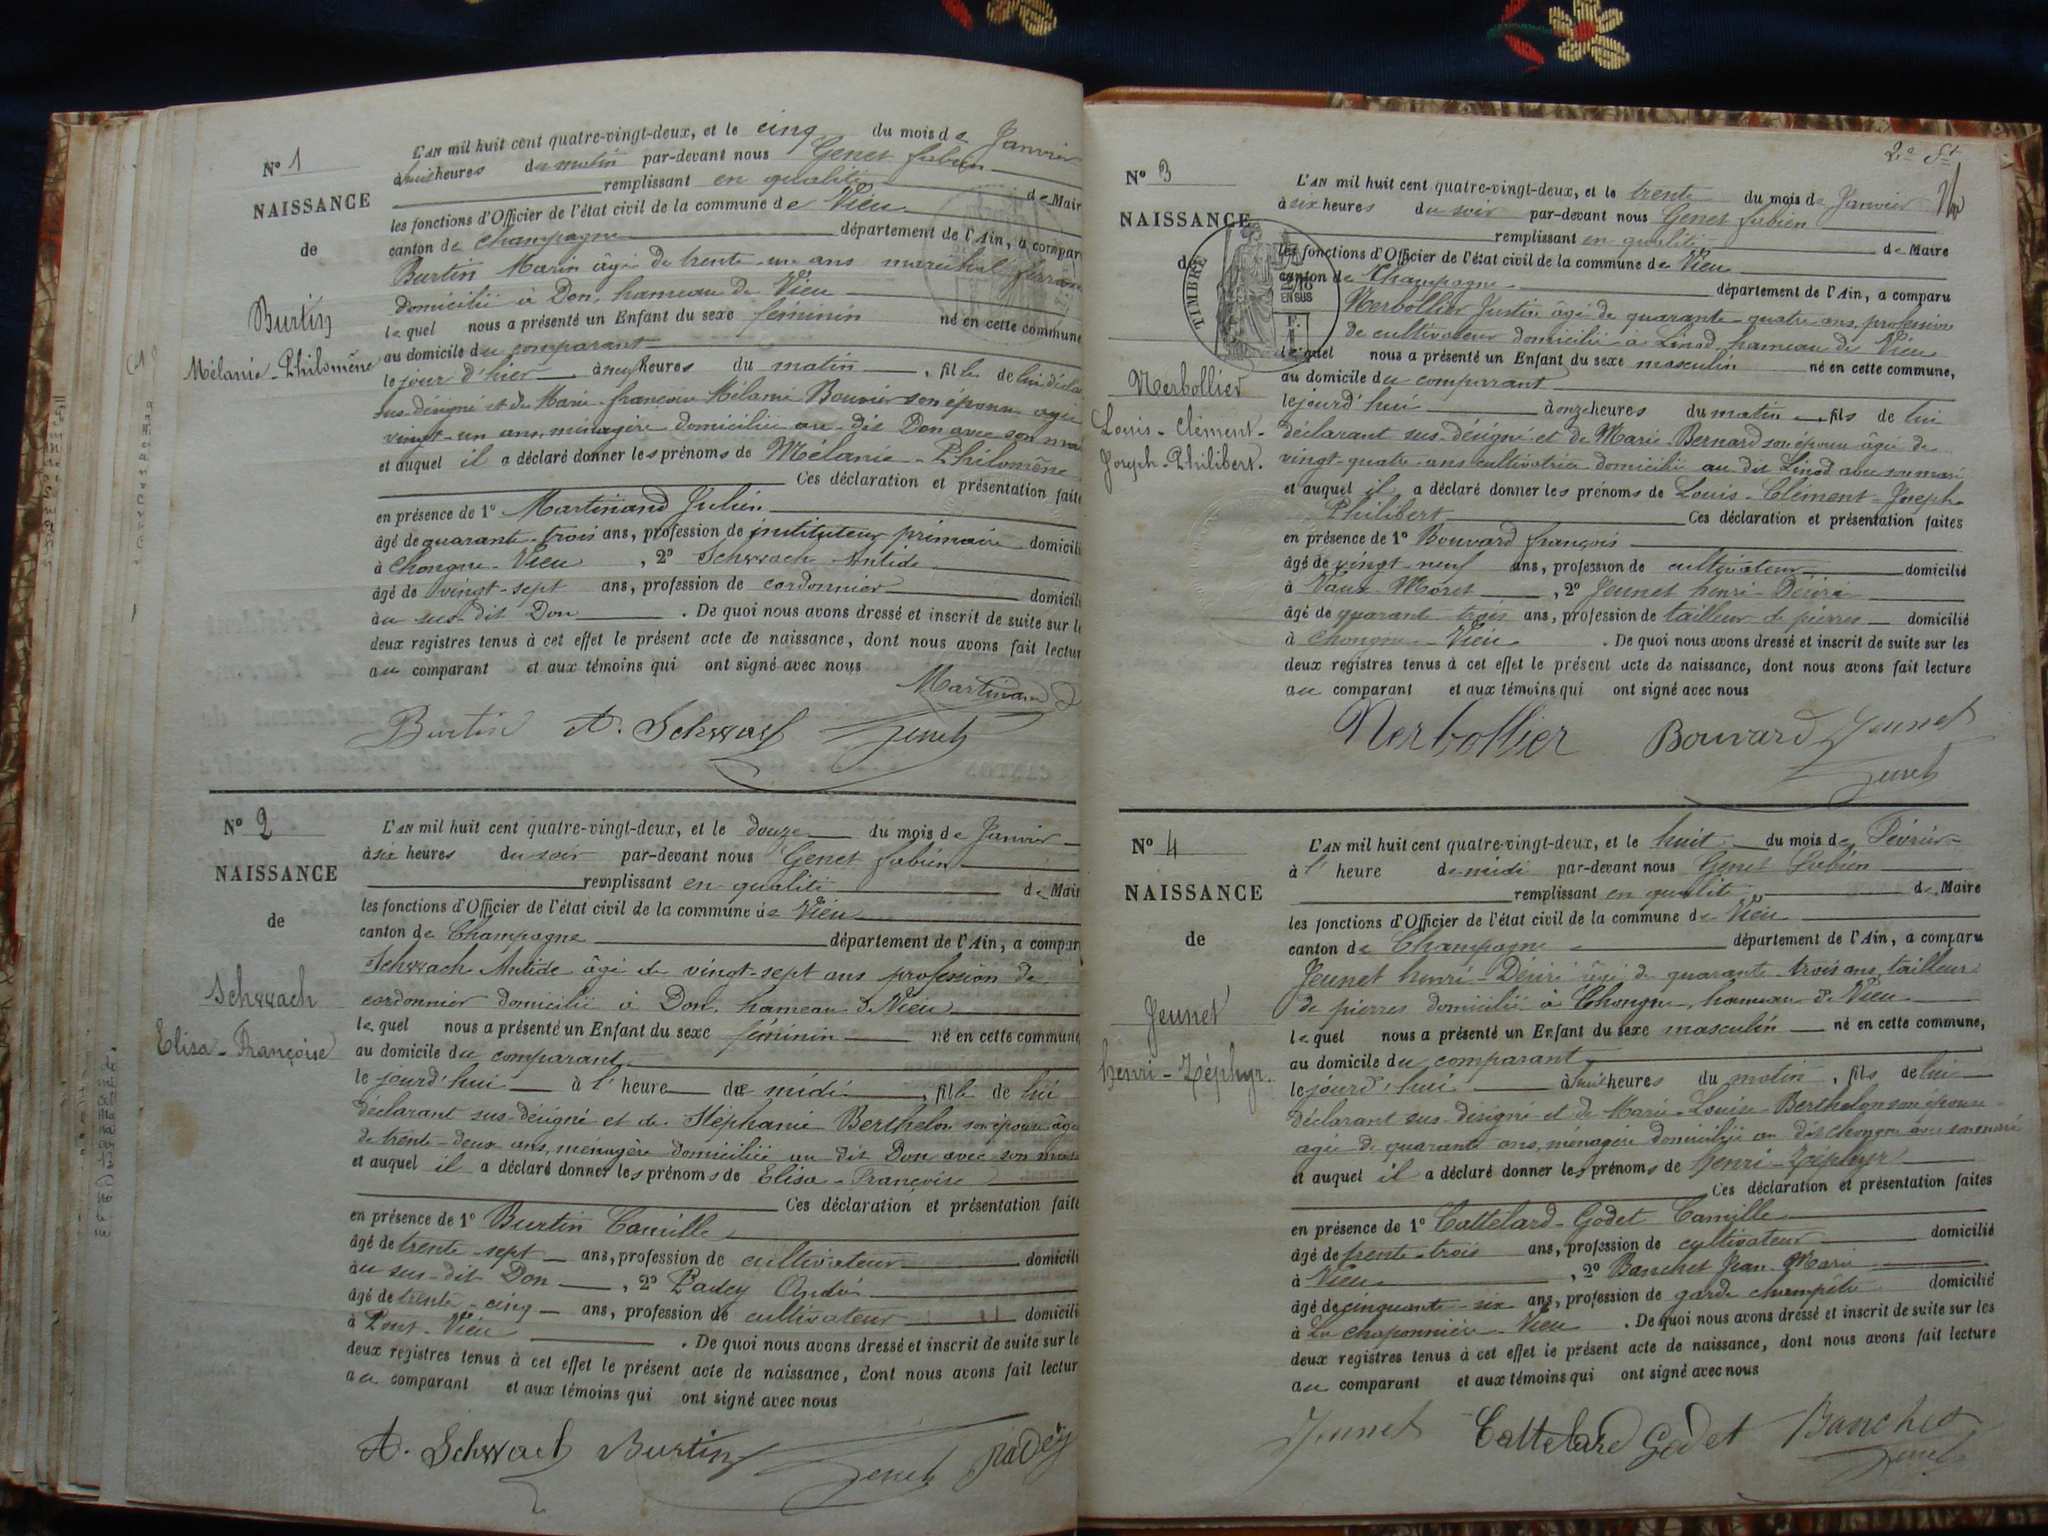 N° 1
NAISSANCE
de
Burtin
Mélanie-Philomène
L'AN mil huit cent quatre-vingt-deux, et le cinq du mois de Janvier
à huit heures du matin par-devant nous Genet fabien
remplissant en qualité de Mair
les fonctions d'Officier de l'état civil de la commune de Vieu
canton de Champagne département de l'Ain, a compar
Burtin Marin âgé de trente-un ans maréchal ferrant
domicilié à Don, hameau de Vieu
lequel nous a présenté un Enfant du sexe féminin né en cette commune
au domicile du comparant
le jour d'hier à neuf heures du matin, fille de lui décla
sus-désigné et de Marie-françoise Mélanie Bouvier son épouse âgée
vingt-un ans, ménagère domiciliée au-dit Don avec son mari
et auquel il a déclaré donner les prénoms de Mélanie-Philomène
Ces déclaration et présentation faite
en présence de 1° Martinand Julien
âgé de quarante-trois ans, profession de instituteur primaire domicili
à Chongne-Vieu, 2° Schwach Antide
âgé de vingt-sept ans, profession de cordonnier domicili
au sus-dit Don. De quoi nous avons dressé et inscrit de suite sur le
deux registres tenus à cet effet le présent acte de naissance, dont nous avons fait lectur
au comparant et aux témoins qui ont signé avec nous
Martinand
Burtin A. Schwach Genet
N° 2
NAISSANCE
de
Schwach
Elisa-Françoise
L'AN mil huit cent quatre-vingt-deux, et le douze du mois de Janvier
à six heures du soir par-devant nous Genet fabien
remplissant en qualité de Mair
les fonctions d'Officier de l'état civil de la commune de Vieu
canton de Champagne département de l'Ain, a compar
Schwach Antide âgé de vingt-sept ans profession de
cordonnier domicilié à Don, hameau de Vieu
lequel nous a présenté un Enfant du sexe féminin né en cette commune
au domicile du comparant
le jourd'hui à l'heure de midi, fille de lui
déclarant sus-désigné et de Stéphanie Berthelon son épouse âgée
de trente-deux ans, ménagère domiciliée au dit Don avec son mari
et auquel il a déclaré donner les prénoms de Elisa-Françoise
Ces déclaration et présentation faite
en présence de 1° Burtin Camille
âgé de trente-sept ans, profession de cultivateur domicili
au sus-dit Don, 2° Padey André
âgé de trente-cinq ans, profession de cultivateur domicili
à Pont-Vieu. De quoi nous avons dressé et inscrit de suite sur le
deux registres tenus à cet effet le présent acte de naissance, dont nous avons fait lectur
au comparant et aux témoins qui ont signé avec nous
A. Schwach Burtin Genet Padey
2e St
N° 3
NAISSANCE
de
TIMBRE
2/10 EN SUS
Nerbollier
Louis-Clément-
Joseph-Philibert.
L'AN mil huit cent quatre-vingt-deux, et le trente du mois de Janvier
à six heures du soir par-devant nous Genet fabien
remplissant en qualité de Maire
les fonctions d'Officier de l'état civil de la commune de Vieu
canton de Champagne département de l'Ain, a comparu
Nerbollier Justin âgé de quarante-quatre ans, profession
de cultivateur domicilié à Linod, hameau de Vieu
lequel nous a présenté un Enfant du sexe masculin né en cette commune,
au domicile du comparant
le jourd'hui à onze heures du matin, fils de lui
déclarant sus-désigné et de Marie Bernard son épouse âgée de
vingt-quatre ans cultivatrice domiciliée au dit Linod avec son mari
et auquel il a déclaré donner les prénoms de Louis-Clément-Joseph-
Philibert Ces déclaration et présentation faites
en présence de 1° Bouvard françois
âgé de vingt-neuf ans, profession de cultivateur domicilié
à Vaux-Moret, 2° Jeunet henri-Désiré
âgé de quarante trois ans, profession de tailleur de pierres domicilié
à Chongne-Vieu. De quoi nous avons dressé et inscrit de suite sur les
deux registres tenus à cet effet le présent acte de naissance, dont nous avons fait lecture
au comparant et aux témoins qui ont signé avec nous
Nerbollier Bouvard Jeunet
Genet
N° 4
NAISSANCE
de
Jeunet
henri-Zéphyr.
L'AN mil huit cent quatre-vingt-deux, et le huit du mois de Février
à l'heure de midi par-devant nous Genet Fabien
remplissant en qualité de Maire
les fonctions d'Officier de l'état civil de la commune de Vieu
canton de Champagne département de l'Ain, a comparu
Jeunet henri-Désiré âgé de quarante-trois ans, tailleur
de pierres domicilié à Chongne, hameau de Vieu
lequel nous a présenté un Enfant du sexe masculin né en cette commune,
au domicile du comparant
le jourd'hui à huit heures du matin, fils de lui
déclarant sus-désigné et de Marie-Louise Berthelon son épouse
agée de quarante ans, ménagère domiciliée au dit Chongne avec son mari
et auquel il a déclaré donner les prénoms de henri-Zéphyr
Ces déclaration et présentation faites
en présence de 1° Cattelard-Godet Camille
âgé de trente-trois ans, profession de cultivateur domicilié
à Vieu, 2° Banchet Jean-Marie
âgé de cinquante-six ans, profession de garde champête domicilié
à La chaponnière-Vieu. De quoi nous avons dressé et inscrit de suite sur les
deux registres tenus à cet effet le présent acte de naissance, dont nous avons fait lecture
au comparant et aux témoins qui ont signé avec nous
Jeunet Cattelard Godet Banchet
Genet